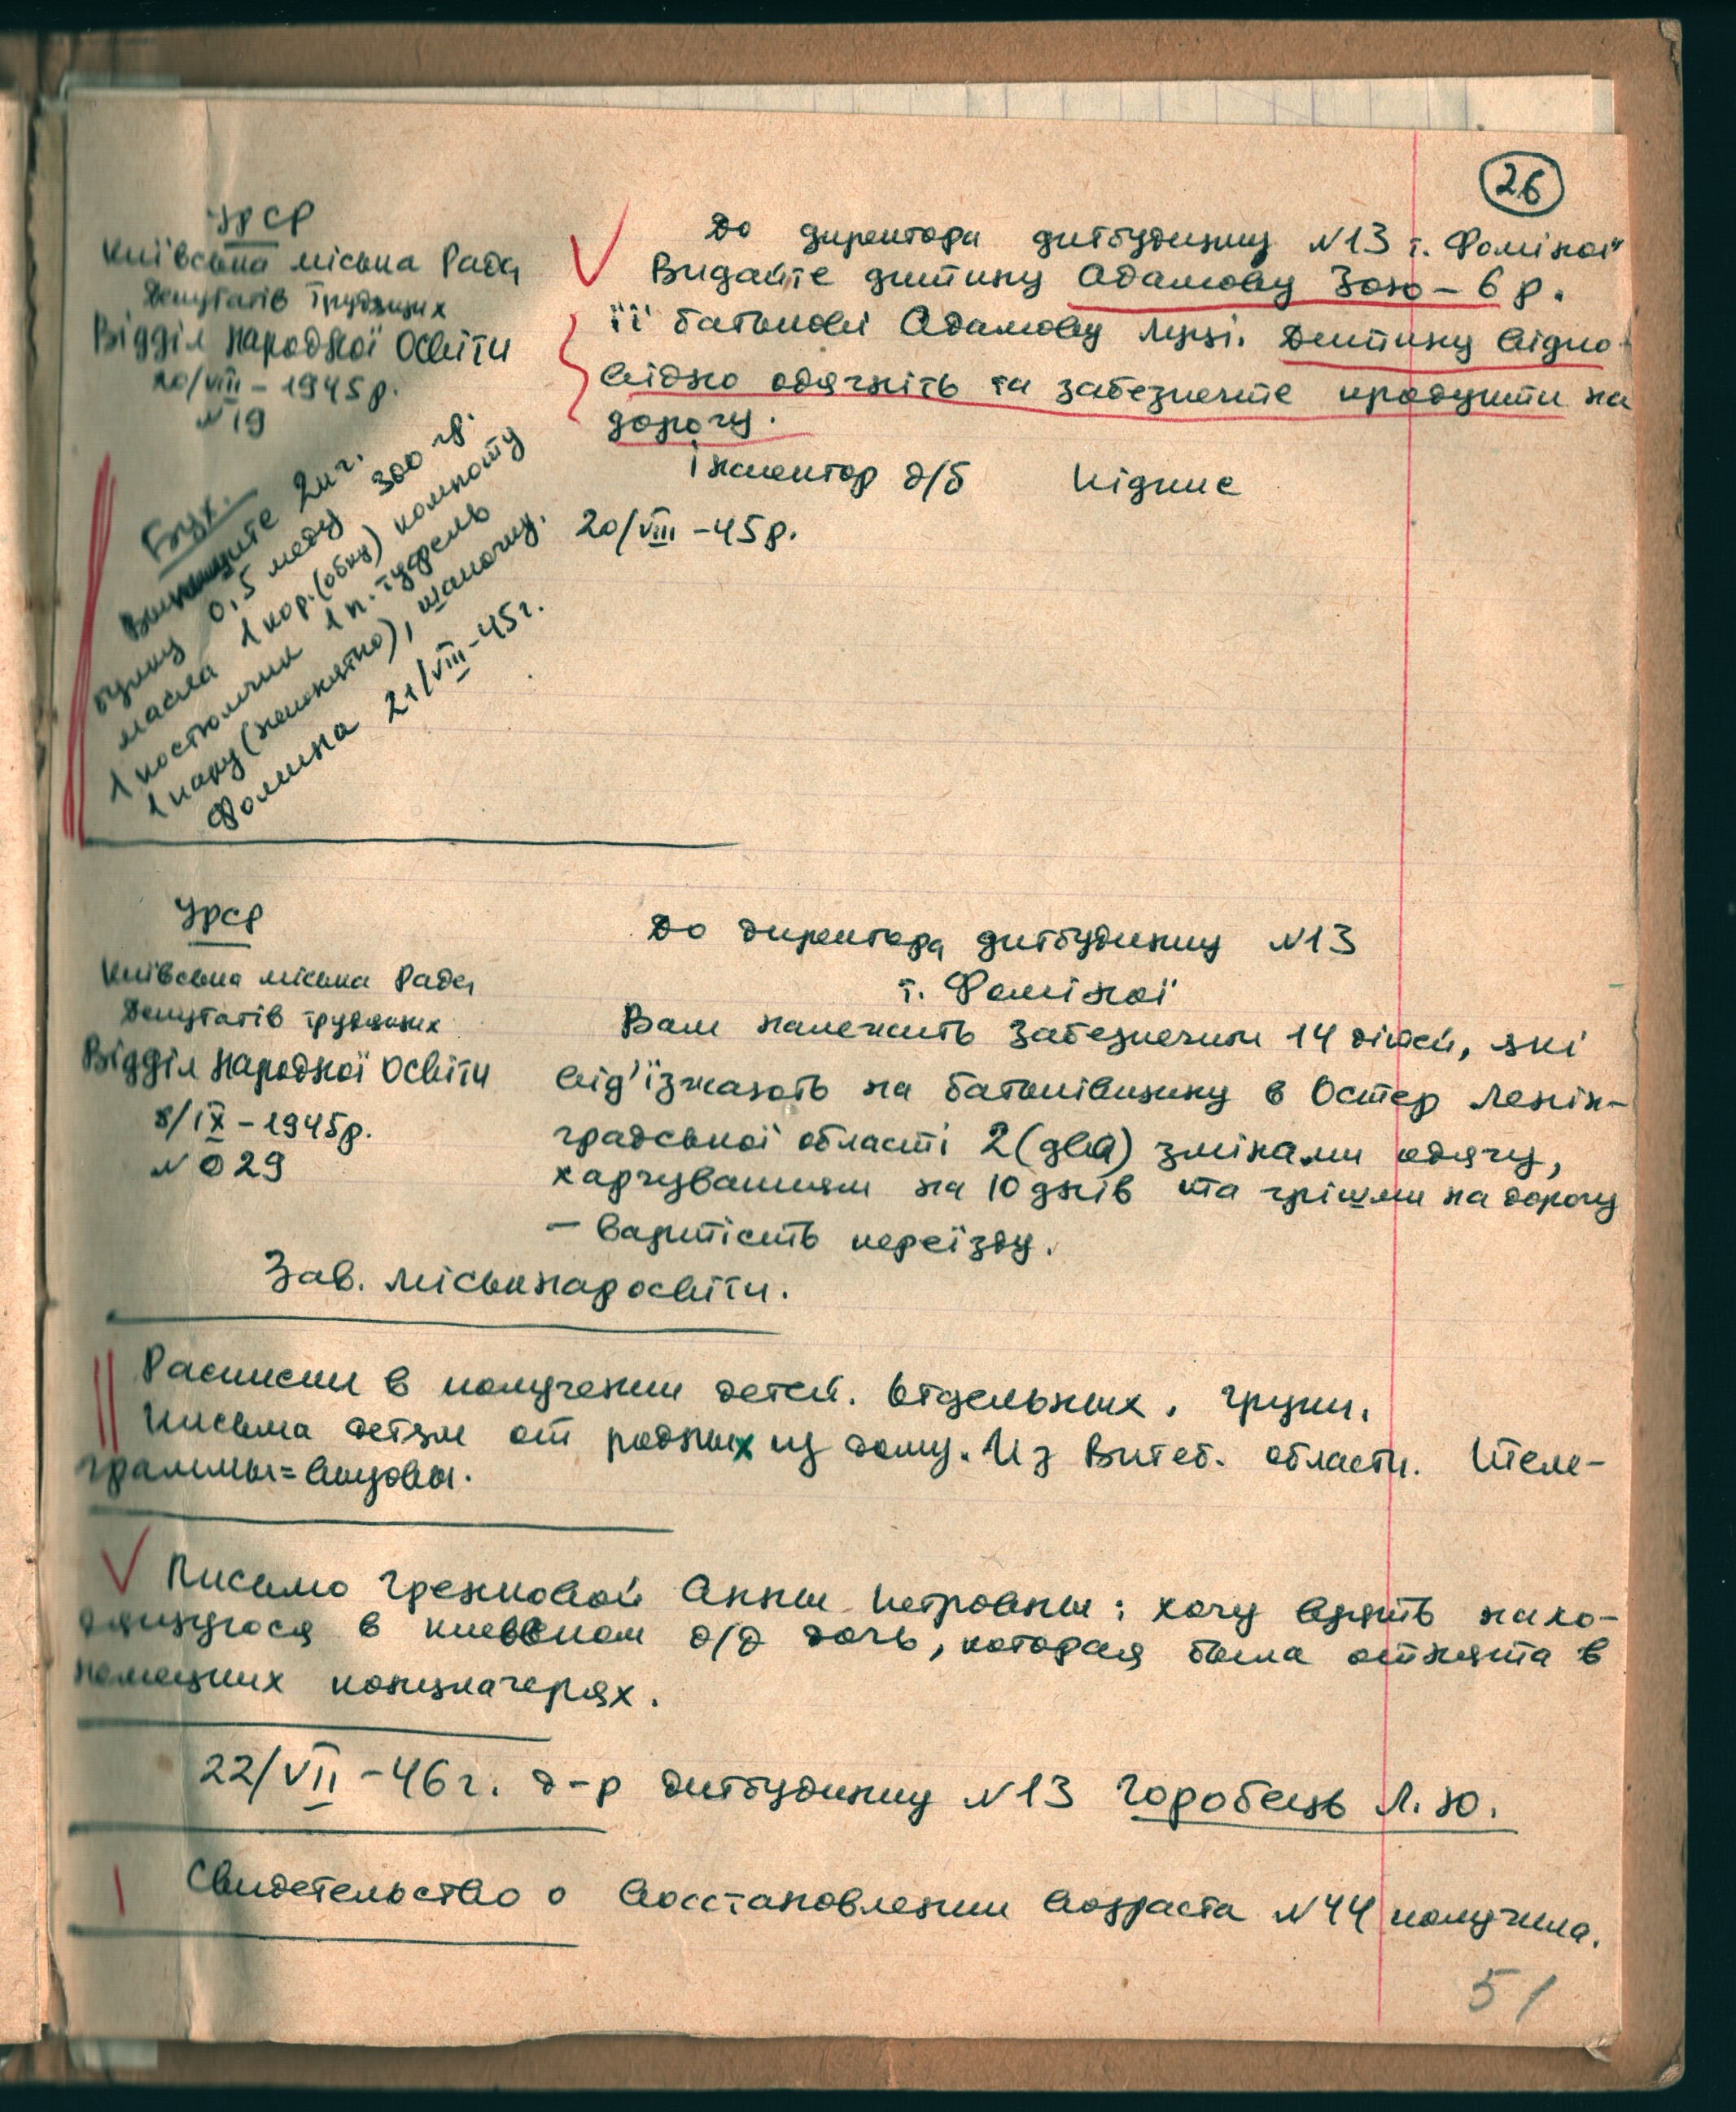 26
УРСР
Київська міська Рада
Депутатів Трудящих
Відділ Народної Освіти
20/VIII – 1945р.
№ 19
До директора дитбудинку №13 т. Фоміної
Видайте дитину Адамову Зою – 6 р.
її батькові Адамову Луці. Дитину відпо-
відно одягніть та забезпечте продукти на
дорогу.
Інспектор д/б Підпис
20/VIII – 45р.
Бух.
Выпишите 2 кг.
булку 0,5 меду 300 гр.
масла 1 кор. (обну) компоту
1 костюмчик 1 п. туфель
1 пару (непонятно), шапочку.
Фомина 21/VIII – 45г.
УРСР
Київська міська Рада
Депутатів трудящих
Відділ Народної Освіти
8/IX – 1945р.
№ 029
До директора дитбудинку №13
т. Фоміної
Вам належить забезпечити 14 дітей, які
від'їзжають на батьківщину в Остер Ленін-
градської області 2 (два) змінами одягу,
харчуванням на 10 днів та грішми на дорогу
– вартість переїзду.
Зав. міськнаросвіти.
Расписки в получении детей. Отдельных, групп.
Письма детям от родных из дому. Из Витеб. области. Теле-
граммы = вызовы.
Письмо Грековой Анны Петровны: хочу взять нахо-
дящуюся в киевском д/д дочь, которая была отнята в
немецких концлагерях.
22/VII – 46 г. д-р дитбудинку №13 Горобець Л. Ю.
Свидетельство о восстановлении возраста №44 получила.
51